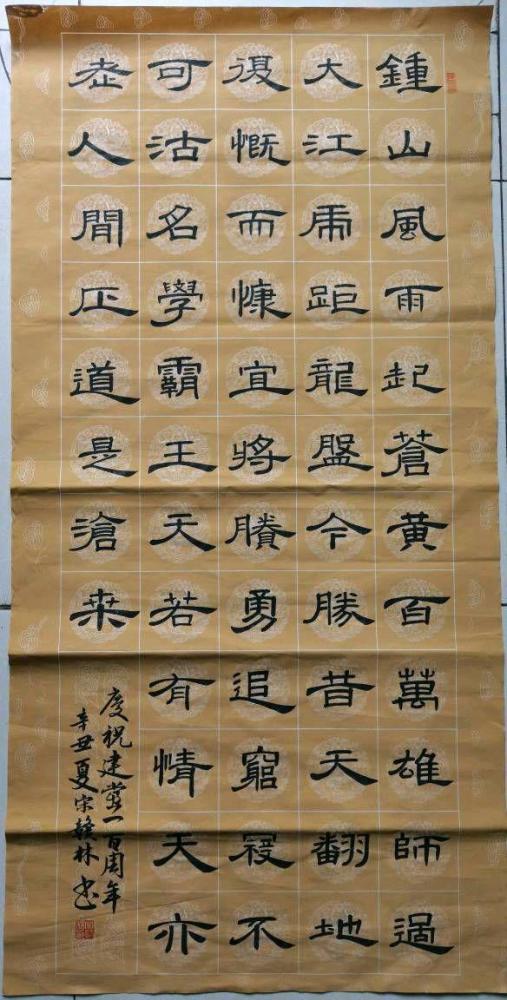 鍾山風雨起蒼黃百萬雄師過
大江虎距龍盤今勝昔天翻地
復慨而慷宜將賸勇追窮寇不
可沽名學霸王天若有情天亦
老人間正道是滄桑
慶祝建黨一百周年
辛丑夏宋贛林书